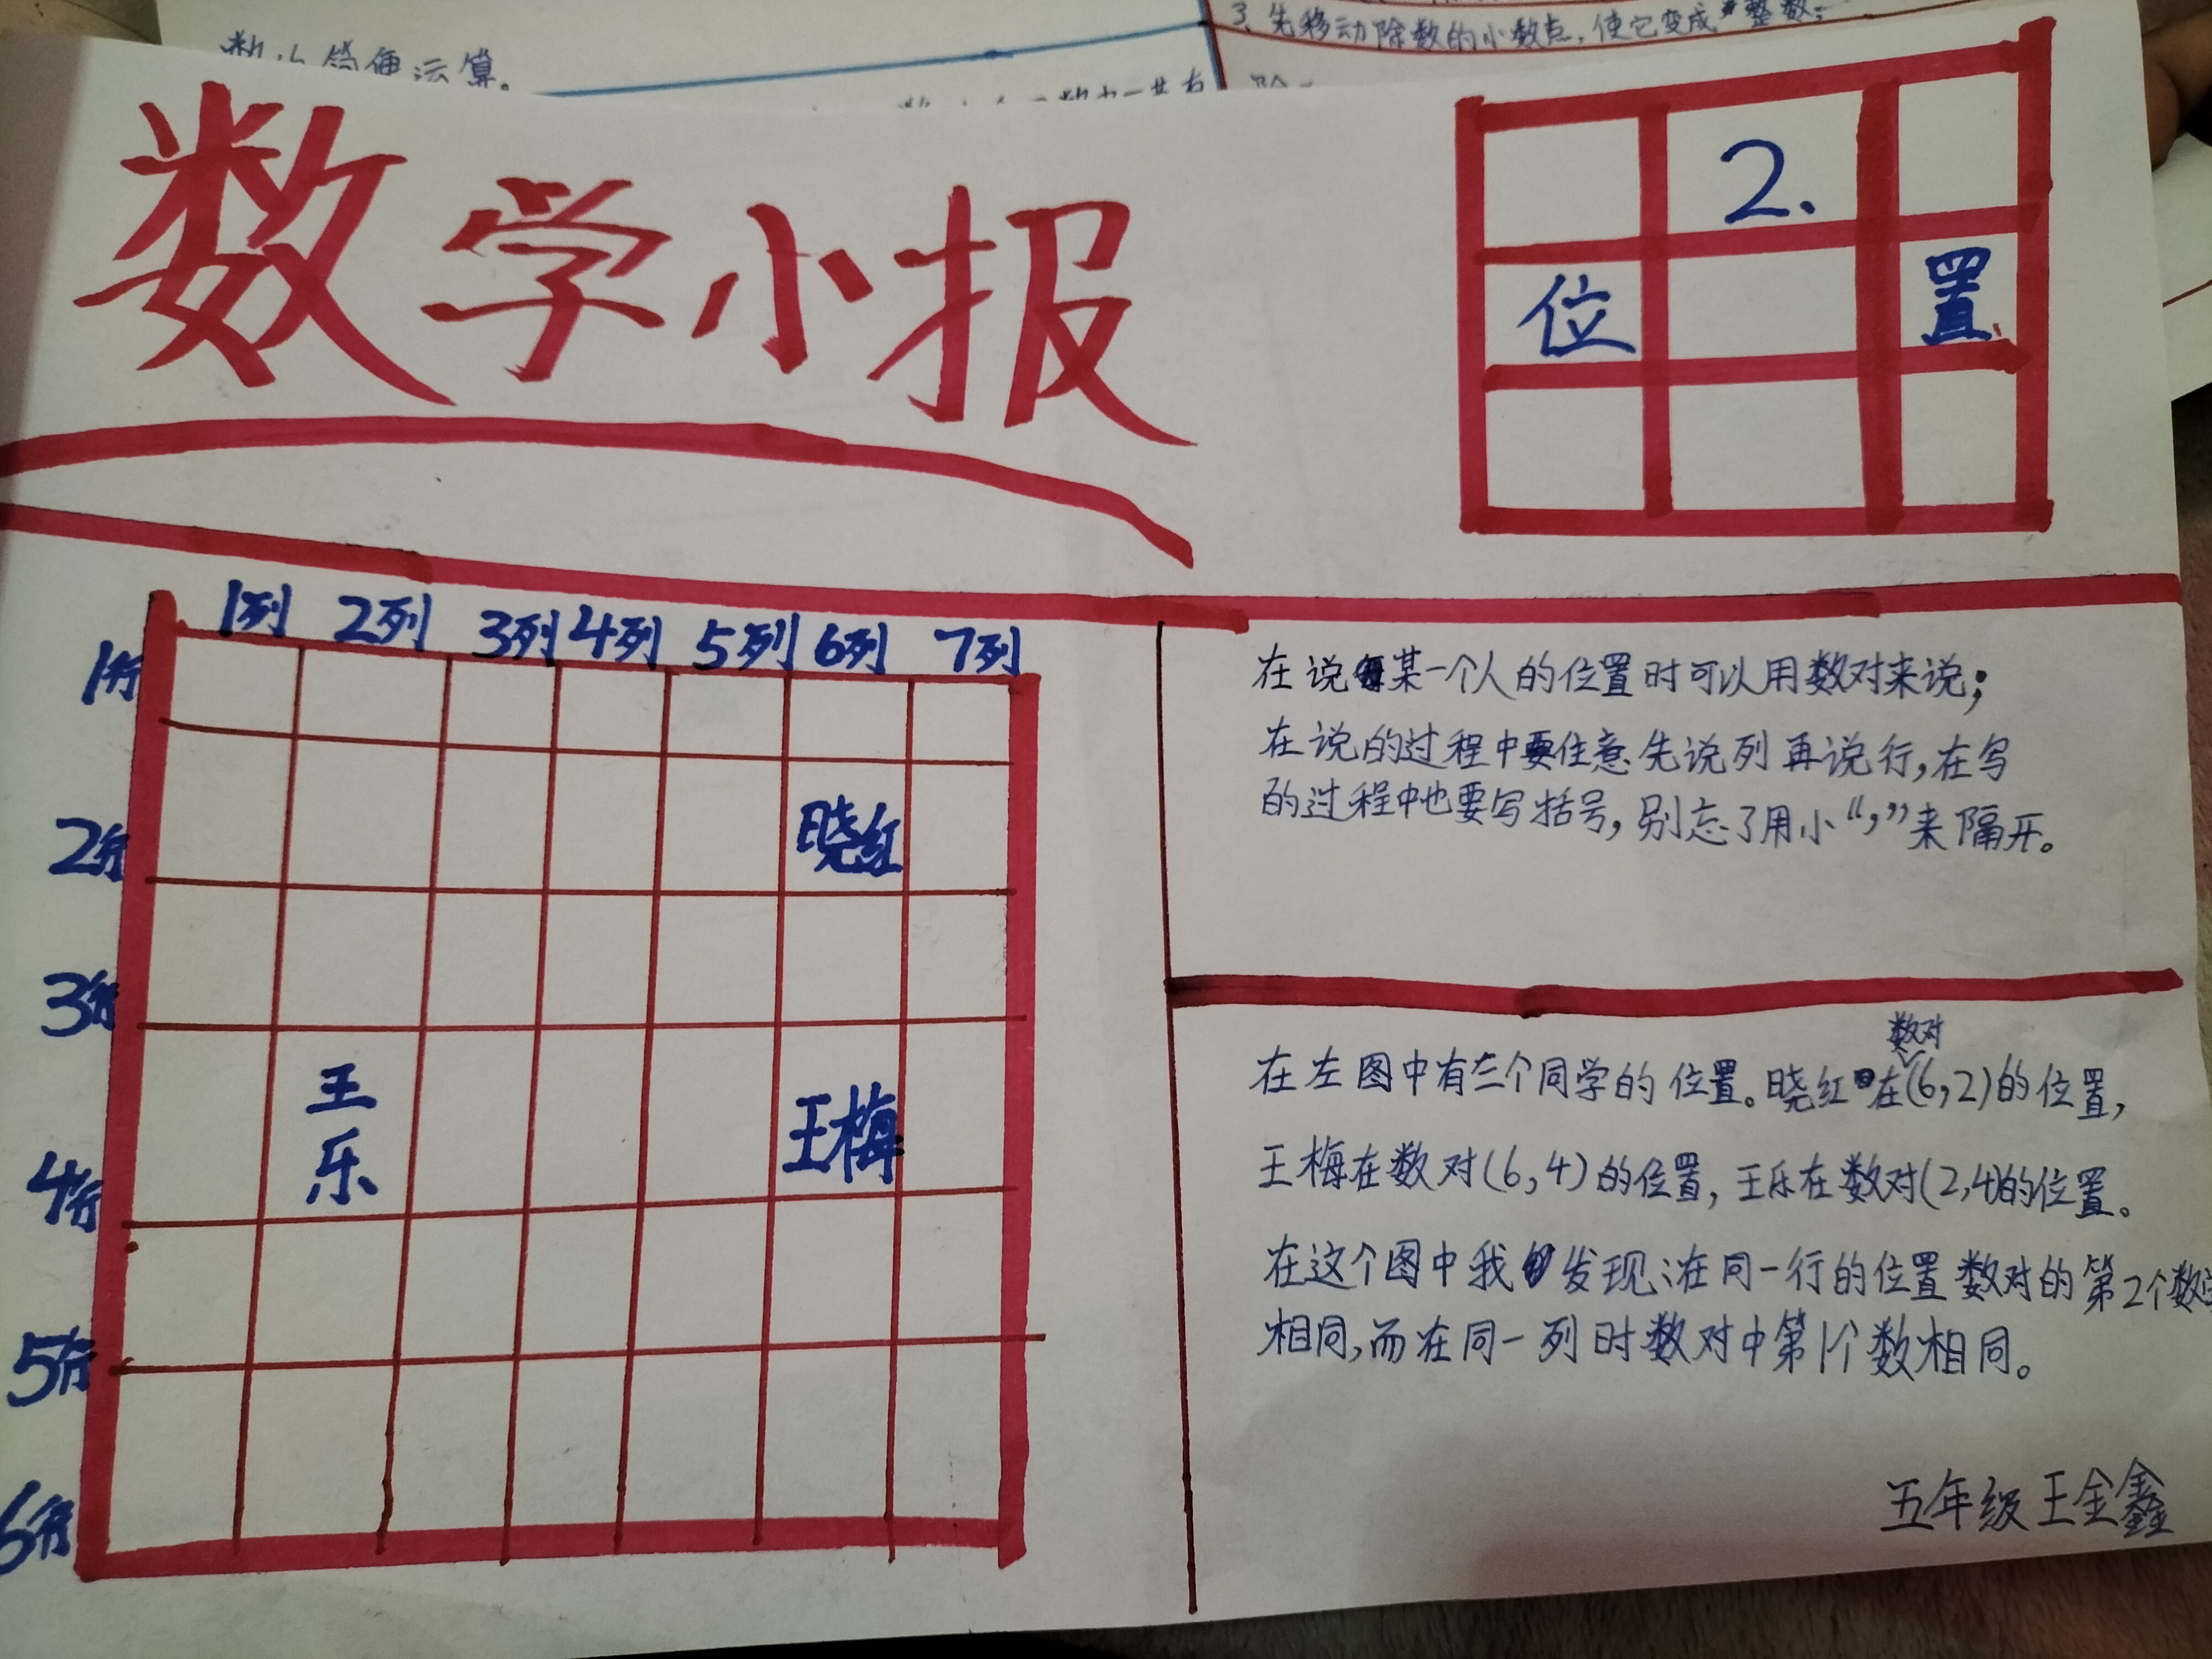 3、先移动除数的小数点,使它变成整数;
简便运算。
数学小报
2.
位 置
1列 2列 3列 4列 5列 6列 7列
1行
2行
晓红
3行
王乐
王梅
4行
5行
6行
在说某一个人的位置时可以用数对来说;
在说的过程中要住意先说列再说行,在写
的过程中也要写括号,别忘了用小“,”来隔开。
数对
在左图中有三个同学的位置。晓红在(6,2)的位置,
王梅在数对(6,4)的位置,王乐在数对(2,4)的位置。
在这个图中我发现:在同一行的位置数对的第2个数
相同,而在同一列时数对中第1个数相同。
五年级王金鑫